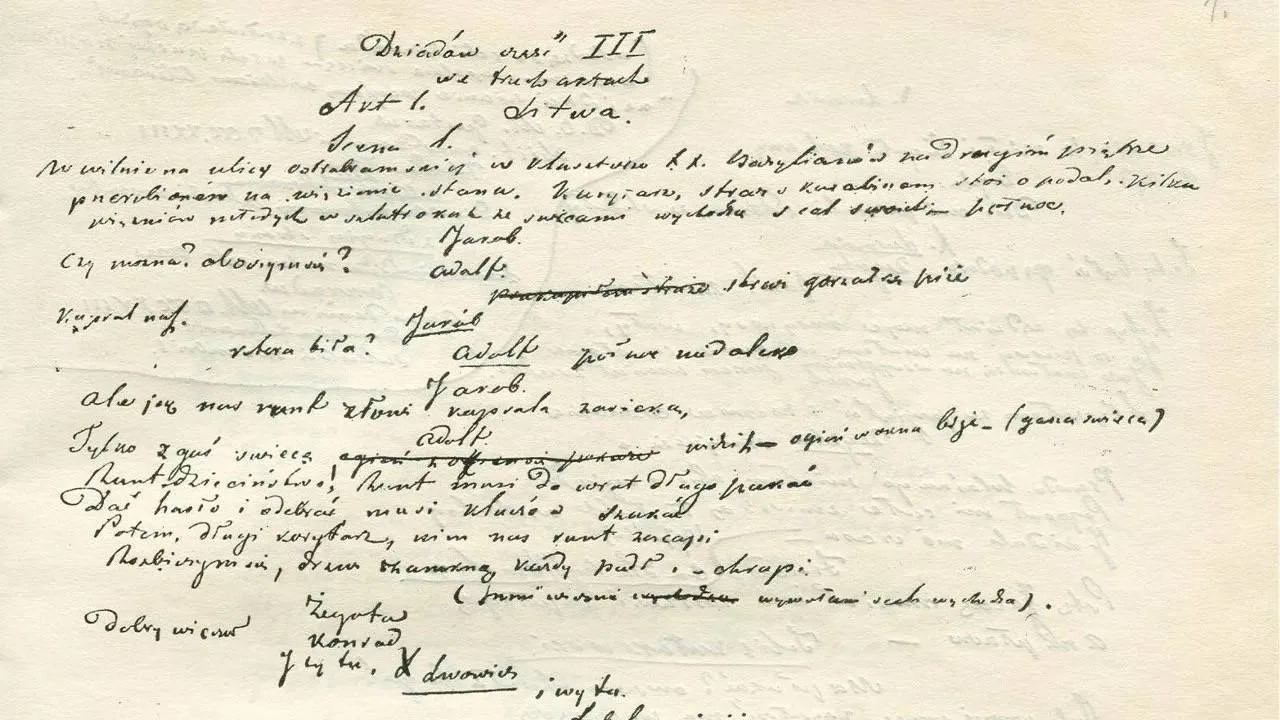 Dziadów część III
we trzech aktach
Akt 1. Litwa.
Scena 1.
W Wilnie na ulicy ostrobramskiej, w klasztorze k.k. Bazylianów na drugim piętrze
przerobionym na więzienie stanu. Korytarz, straż z karabinem stoi opodal. Kilku
więźniów młodych ze świecami wychodzą z cel swoich – północ.
Jakob.
Czy można? obaczymy się?
Adolf.
straż gorzałkę pije
Kapral nasz.
Jakób
która biła?
Adolf północ niedaleko
Jakob.
Ale jeś nas runt złowi kaprala zasieką,
Adolf.
Tylko zgaś świecę widzisz – ogień w okna bije – (gasną świecę)
Runt dzieciństwo, Runt musi do wrot długo pukać
Dać hasło i odebrać musi kluczów szukać
Potem, długi korytarz, nim nas runt zacapi
Rozbieżym się, drzwi zamkną każdy padł i – chrapi.
(Inni więźnie wywołani z cel wychodzą).
Żegota
Dobry wieczór
Konrad
I ty tu,
X Lwowicz
i wy tu.